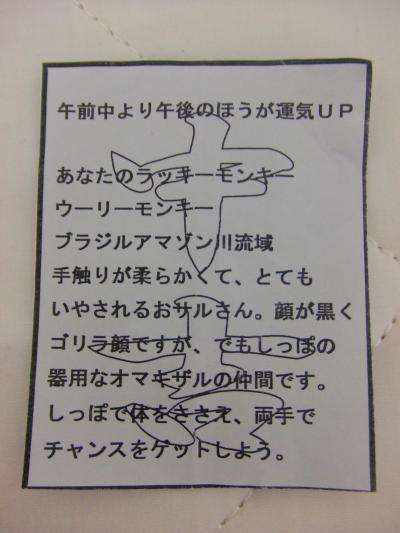 午前中より午後のほうが運気UP
あなたのラッキーモンキー
ウーリーモンキー
ブラジルアマゾン川流域
手触りが柔らかくて、とても
いやされるおサルさん。顔が黒く
ゴリラ顔ですが、でもしっぽの
器用なオマキザルの仲間です。
しっぽで体をささえ、両手で
チャンスをゲットしよう。